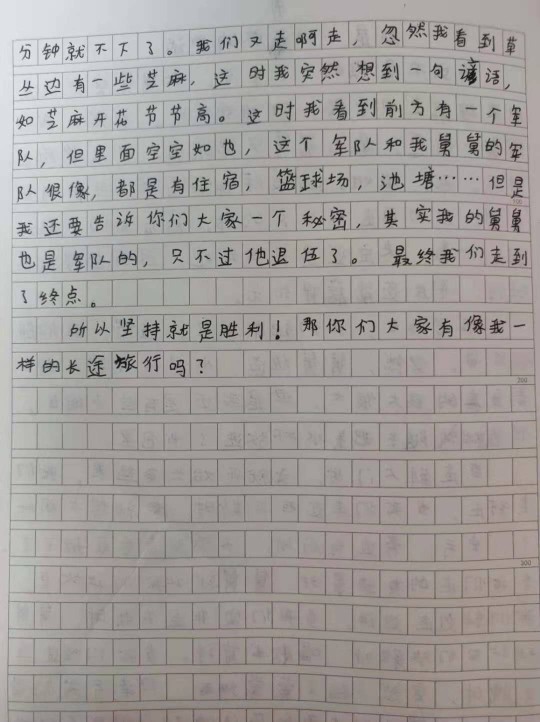 分钟就不下了。我们又走啊走，忽然我看到草
丛边有一些芝麻，这时我突然想到一句谚语，
如芝麻开花节节高。这时我看到前方有一个军
队，但里面空空如也，这个军队和我舅舅的军
队很像，都是有住宿，篮球场，池塘……但是
我还要告诉你们大家一个秘密，其实我的舅舅
也是军队的，只不过他退伍了。最终我们走到
了终点。
所以坚持就是胜利！那你们大家有像我一
样的长途旅行吗？
200
300